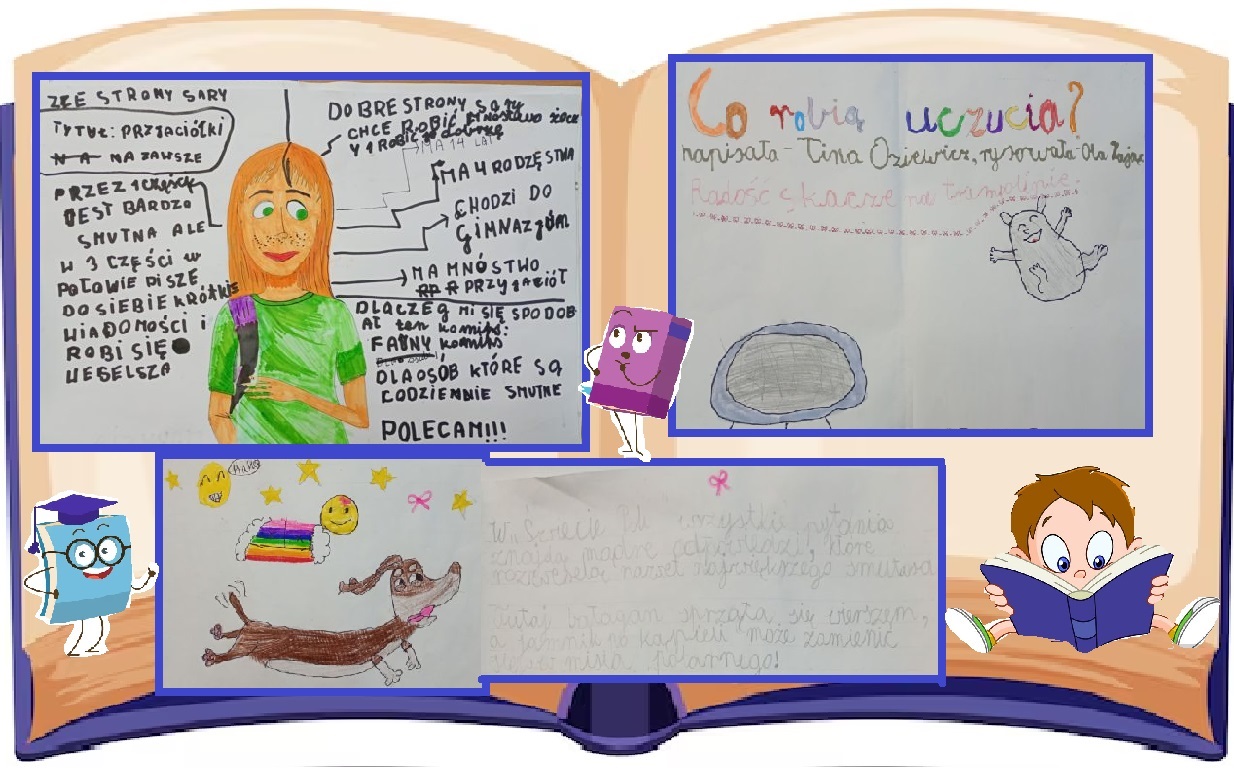 ZŁE STRONY SARY
TYTUŁ: PRZYJACIÓŁKI
NA ZAWSZE
PRZEZ 1 CZĘŚĆ
JEST BARDZO
SMUTNA ALE
W 3 CZĘŚCI W
POŁOWIE PISZE
DO SIEBIE KRÓTKIE
WIADOMOŚCI I
ROBI SIĘ
WESELSZA
DOBRE STRONY SARY
CHCE ROBIĆ MNÓSTWO RZECZ
Y I ROBIĆ dobrze
MA 14 LAT
MA 4 RODZĘSTWA
CHODZI DO
GIMNAZJÓM
MA MNÓSTWO
PRZYJACIÓŁ
DLACZEG MI SIĘ SPODOB
AŁ ten komiks:
FAJNY komiks
DLA OSÓB KTÓRE SĄ
CODZIENNIE SMUTNE
POLECAM!!!
Co robią uczucia?
napisała - Tina Oziewicz, rysowała - Ola Zając
Radość skacze na trampolinie.
W Świecie Poli wszystkie pytania
znajdą mądre odpowiedzi, które
rozweselą nawet największego smutasa
Tutaj bałagan sprząta się wierszem,
a jamnik po kąpieli może zamienić
się w misia polarnego!